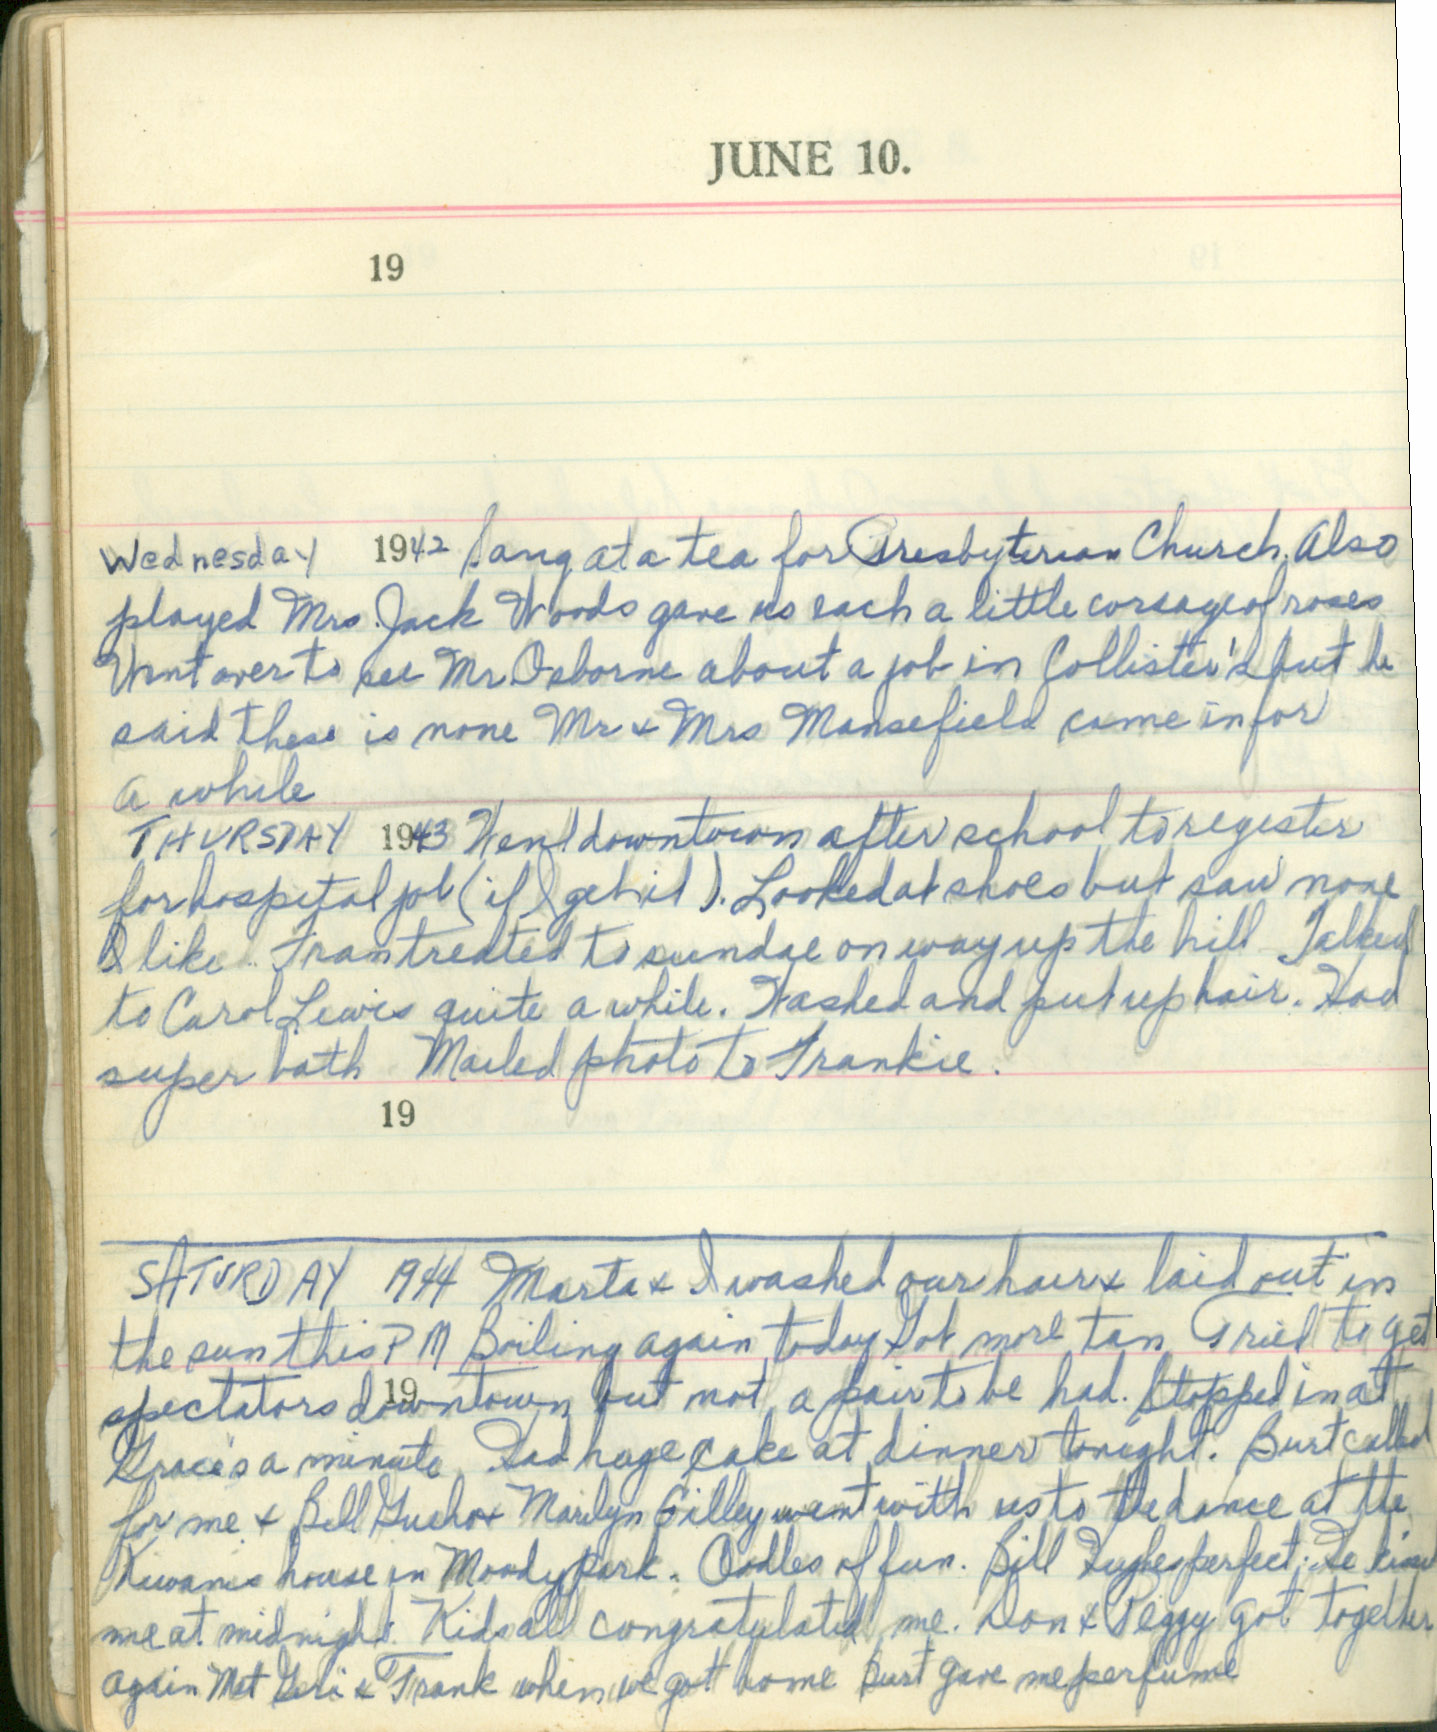 JUNE 10.
19
Wednesday 1942 Sang at a tea for Presbyterian Church. Also
played Mrs. Jack Woods gave us each a little corsage of roses
Went over to see Mr. Osborne about a job in Collister's but he
said there is none Mr & Mrs Mansefield came in for
a while
THURSDAY 1943 Went downtown after school to register
for hospital job (if I get it). Looked at shoes but saw none
I like. Fran treated to sundae on way up the hill Talked
to Carol Lewis quite a while. Washed and put up hair. Had
super bath Mailed photo to Frankie.
19
SATURDAY 1944 Marta & I washed our hair & laid out in
the sun this PM Boiling again today Got more tan Tried to get
19
spectators downtown but not a pair to be had. Stopped in at
Grace's a minute Had huge cake at dinner tonight. Burt called
for me & Bill & Marilyn Gilley went with us to the dance at the
Kiwanis house in Moody Park. Oodles of fun. Bill Hughes perfect; He kissed
me at midnight. Kids all congratulated me. Don & Peggy got together
again Met Geri & Frank when we got home Burt gave me perfume